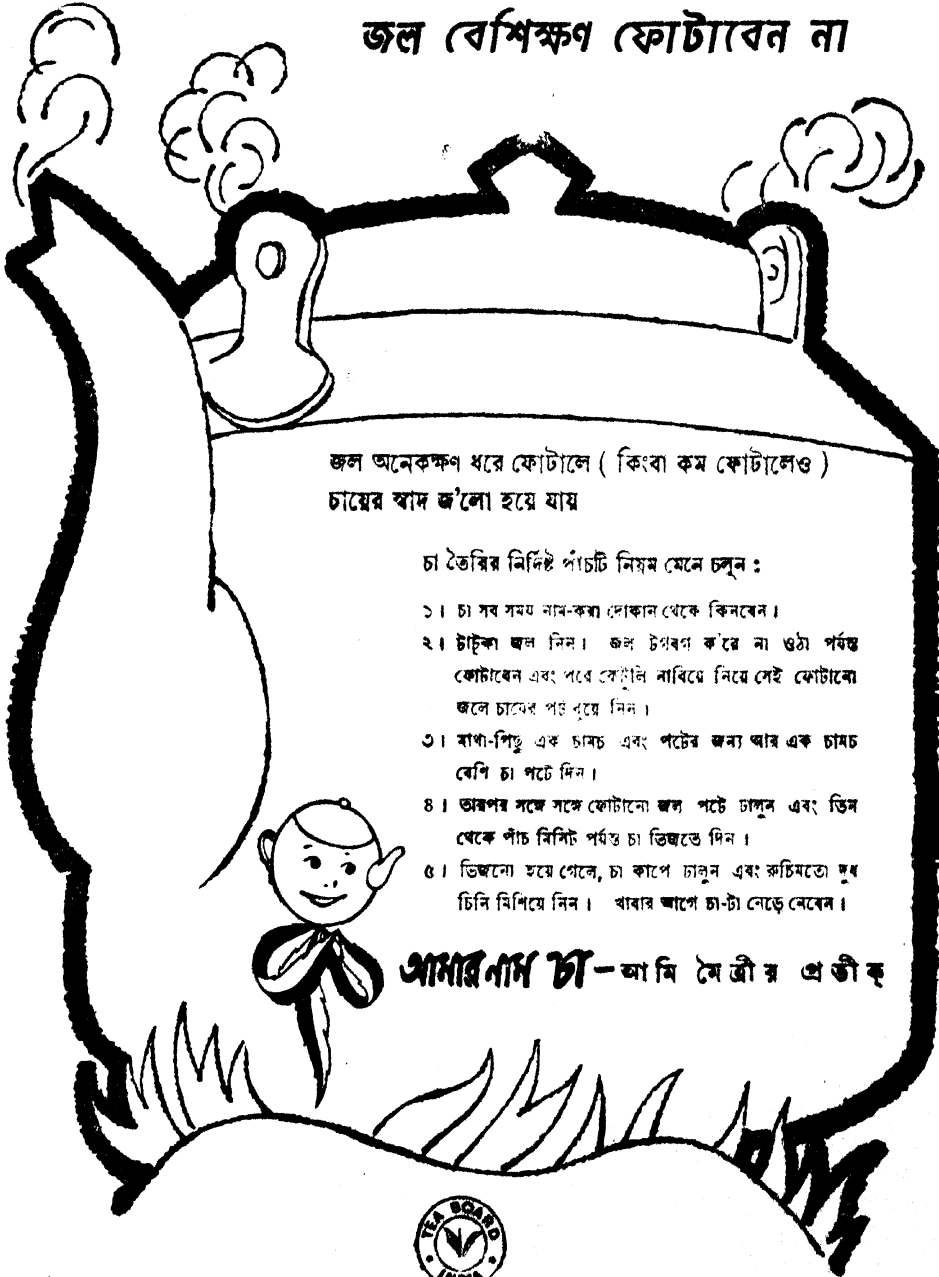 জল বেশিক্ষণ ফোটাবেন না
জল অনেকক্ষণ ধরে ফোটালে ( কিংবা কম ফোটালেও )
চায়ের স্বাদ জ'লো হয়ে যায়
চা তৈরির নির্দিষ্ট পাঁচটি নিয়ম মেনে চলুন :
১। চা সব সময় নাম-করা দোকান থেকে কিনবেন।
২। টাট্‌কা জল নিন। জল টগবগ ক'রে না ওঠা পর্যন্ত
ফোটাবেন এবং পরে কেট্‌লি নাবিয়ে নিয়ে সেই ফোটানো
জলে চায়ের পট ধুয়ে নিন।
৩। মাথা-পিছু এক চামচ এবং পটের জন্য আর এক চামচ
বেশি চা পটে দিন।
৪। তারপর সঙ্গে সঙ্গে ফোটানো জল পটে ঢালুন এবং তিন
থেকে পাঁচ মিনিট পর্যন্ত চা ভিজতে দিন।
৫। ভিজানো হয়ে গেলে, চা কাপে ঢালুন এবং রুচিমতো দুধ
চিনি মিশিয়ে নিন। খাবার আগে চা-টা নেড়ে নেবেন।
আমার নাম চা – আমি মৈত্রীর প্রতীক্
TEA BOARD
INDIA